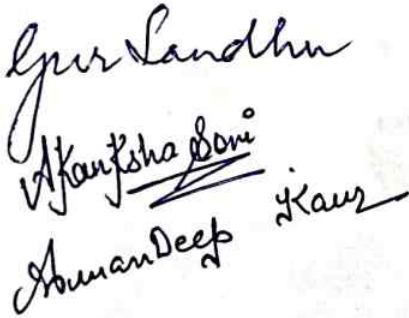 Gur Sandhu
Akanksha Soni
AmanDeep Kaur